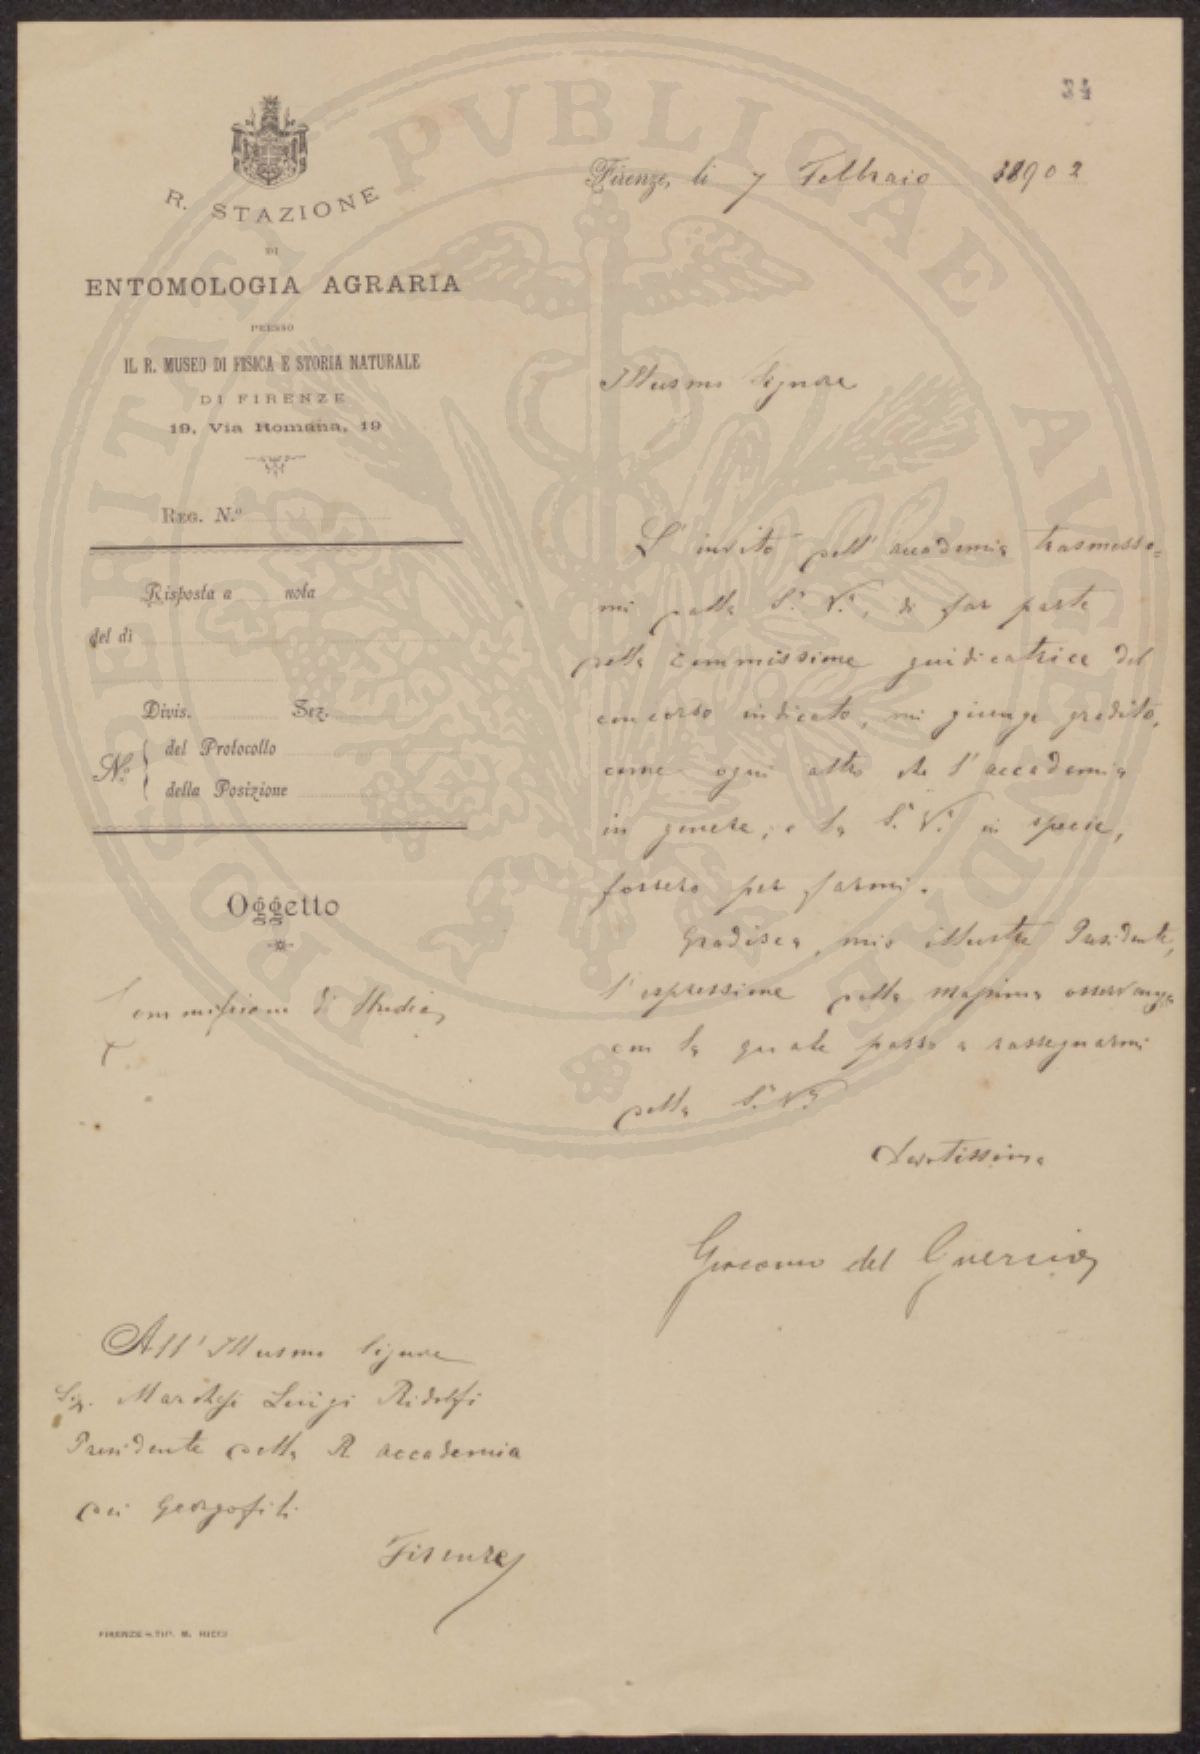 34
R. STAZIONE
DI
ENTOMOLOGIA AGRARIA
PRESSO
IL R. MUSEO DI FISICA E STORIA NATURALE
DI FIRENZE
19, Via Romana, 19
Reg. N.º
Risposta a nota
del dì
Divis. Sez.
N.º del Protocollo
della Posizione
Oggetto
Commissione di Studio
Firenze, li 7 Febbraio 1902
Illusmo Signore
L'invito dell'accademia trasmesso=
mi dalla S.ª V.ª, di far parte
della commissione giudicatrice del
concorso indicato, mi giunge gradito,
come ogni altro che l'accademia
in genere, e la S.ª V.ª in specie,
fossero per farmi.
Gradisca, mio illustre Presidente,
l'espressione della massima osservanza
con la quale passo a rassegnarmi
della S.ª V.ª
Devotissimo
Giacomo del Guercio
All'Illusmo Signore
Sig. Marchese Luigi Ridolfi
Presidente della R accademia
dei Georgofili
Firenze
FIRENZE - TIP. M. RICCI
PROSPERITATI PVBLICAE AVGENDAE